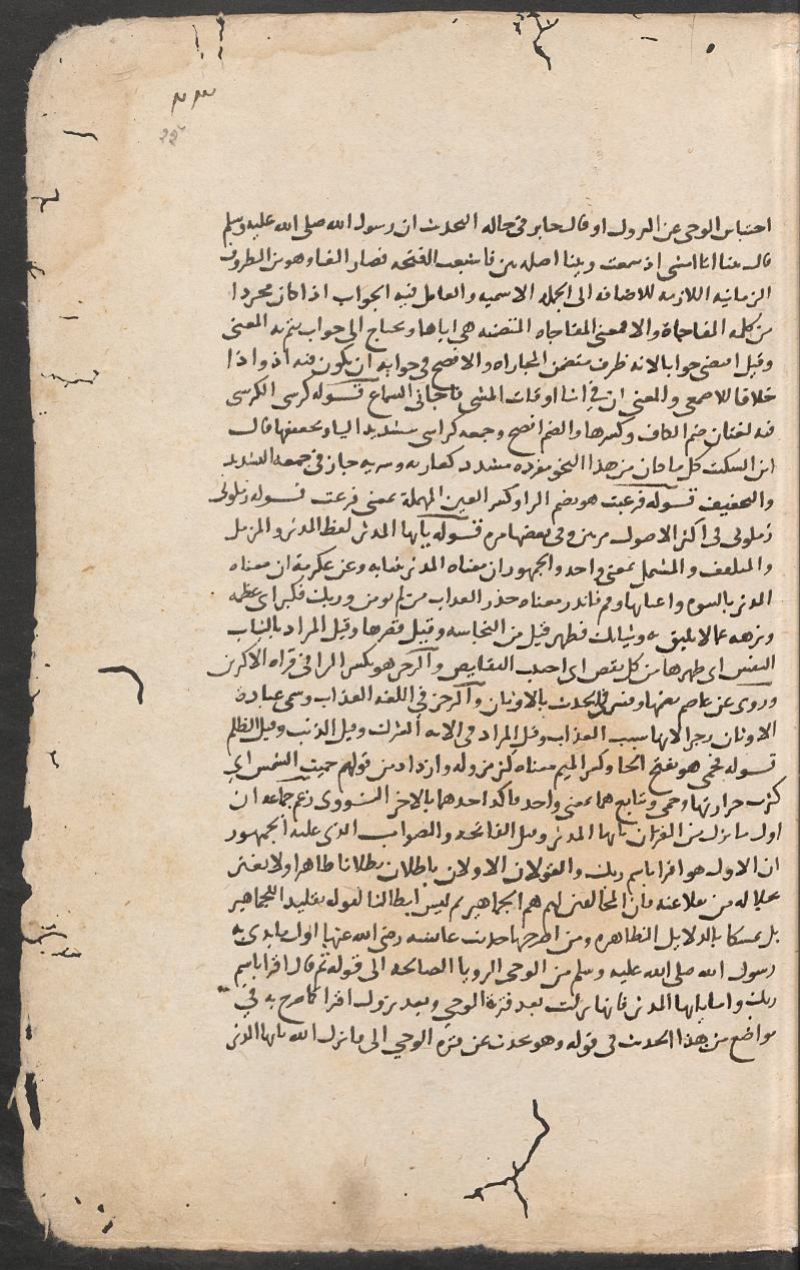 ٢٣
احتباس الوحي عن النزول او قال جابر في حاله التحدث ان رسول الله صلى الله عليه وسلم
قال بينا انا امشي اذ سمعت وبينا اصله بين فاشبعت الفتحه فصار الفا وهو من الظروف
الزمانيه اللازمه للاضافه الى الجمله الاسميه والعامل فيه الجواب اذا كان مجردا
من كلمه المفاجاة والا فمعنى المفاجاه المتضمنه هي اياها ويحتاج الى جواب يتم به المعنى
وقيل اقتضى جوابا لانه ظرف يتضمن المجازاه والافصح في جوابه ان يكون فيه اذ واذا
خلافا للاصمعي والمعنى ان في اثنا اوقات المشي فاجاني السماع قوله كرسي الكرسي
فيه لغتان ضم الكاف وكسرها والضم افصح وجمعه كراسي بتشديد اليا وتخفيفها قال
ابن السكيت كل ما كان من هذا النحو مفرده مشدد كعاريه وسريه جاز في جمعه التشديد
والتخفيف قوله فرعبت هو بضم الرا وكسر العين المهملة بمعنى فزعت قوله زملوني
زملوني في اكثر الاصول مرتين وفي بعضها مره قوله يا يها المدثر لفظ المدثر والمزمل
والمتلفف والمشتمل بمعنى واحد والجمهور ان معناه المدثر بثيابه وعن عكرمة ان معناه
المدثر بالنبوه واعبائها وقم فانذر معناه حذر العذاب من لم يومن وربك فكبر اي عظمه
ونزهه عما لا يليق به وثيابك فطهر قيل من النجاسه وقيل قصرها وقيل المراد بالثياب
النفس اي طهرها من كل نقص اي اجتنب النقايص والرجز هو بكسر الرا في قراه الاكثرين
وروى عن عاصم بضمها وفسر في الحديث بالاوثان والرجز في اللغه العذاب وسمي عبادة
الاوثان رجزا لانها سبب العذاب وقيل المراد في الايه الشرك وقيل الذنب وقيل الظلم
قوله فحمي هو بفتح الحا وكسر الميم معناه كثر نزوله وازداد من قولهم حميت الشمس اي
كثرت حرارتها وحمي وتتابع هما بمعنى واحد فاكد احدهما بالاخر النووي زعم جماعه ان
اول ما نزل من القران يا يها المدثر وقيل الفاتحه والصواب الذي عليه الجمهور
ان الاول هو اقرا باسم ربك والقولان الاولان باطلان بطلانا ظاهرا ولا يغتر
بجلاله من نقلا عنه فان المخالفين لهم هم الجماهير ثم ليس ابطالنا لقوله تقليدا للجماهير
بل تمسكا بالدلايل الظاهره ومن اصرحها حديث عائشه رضي الله عنها اول ما بدي به
رسول الله صلى الله عليه وسلم من الوحي الرويا الصالحه الى قوله ثم قال اقرا باسم
ربك واما يا ايها المدثر فانها نزلت بعد فترة الوحي وبعد نزول اقرا كما صرح به في
مواضع من هذا الحديث في قوله وهو يحدث عن فترة الوحي الى فانزل الله يا يها المدثر